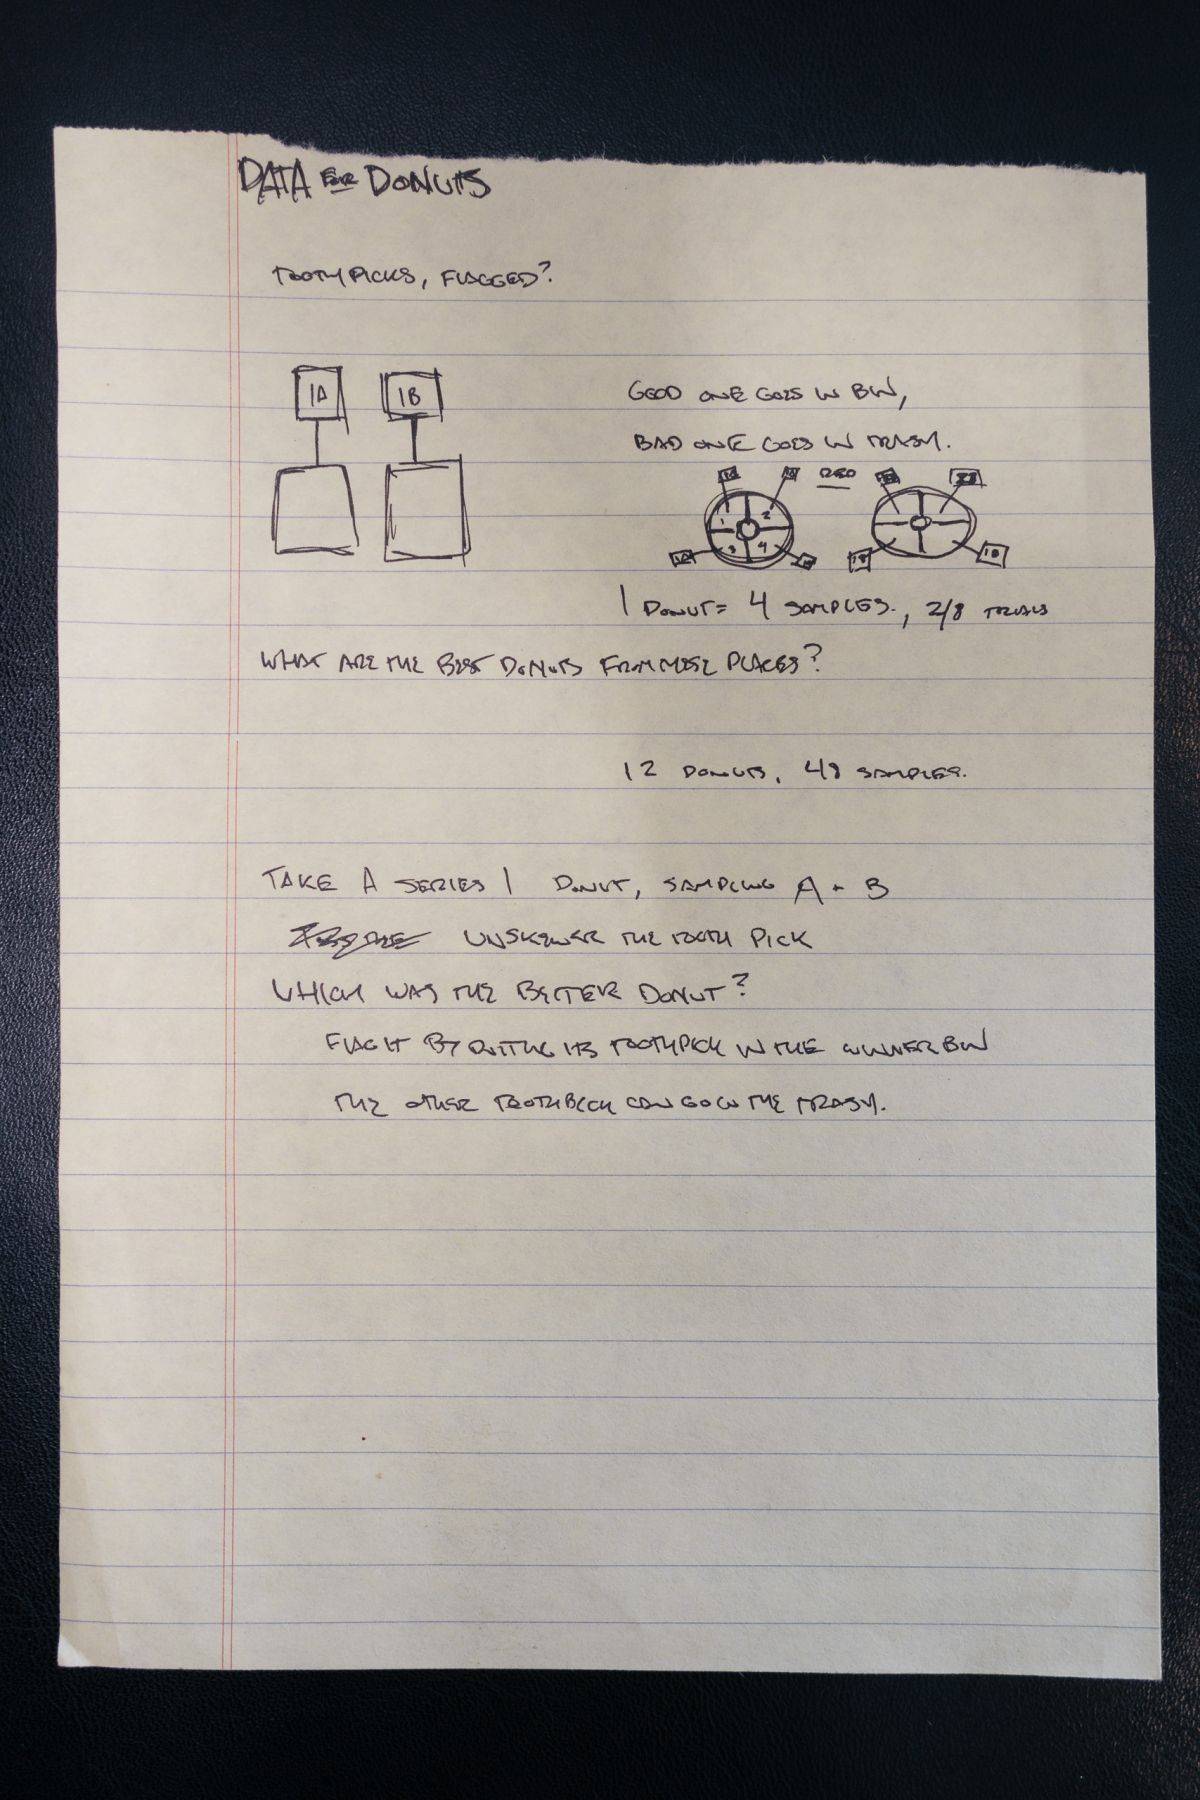 DATA FOR DONUTS
TOOTHPICKS, FLAGGED?
1A 1B
GOOD ONE GOES IN BIN,
BAD ONE GOES IN TRASH.
1 2
3 4
1A 1B
1 DONUT = 4 SAMPLES., 2/8 TRIALS
WHAT ARE THE BEST DONUTS FROM THESE PLACES?
12 DONUTS, 48 SAMPLES.
TAKE A SERIES 1 DONUT, SAMPLING A + B
UNSKEWER THE TOOTH PICK
WHICH WAS THE BETTER DONUT?
FLAG IT BY PUTTING ITS TOOTHPICK IN THE WINNER BIN
THE OTHER TOOTHPICK CAN GO IN THE TRASH.